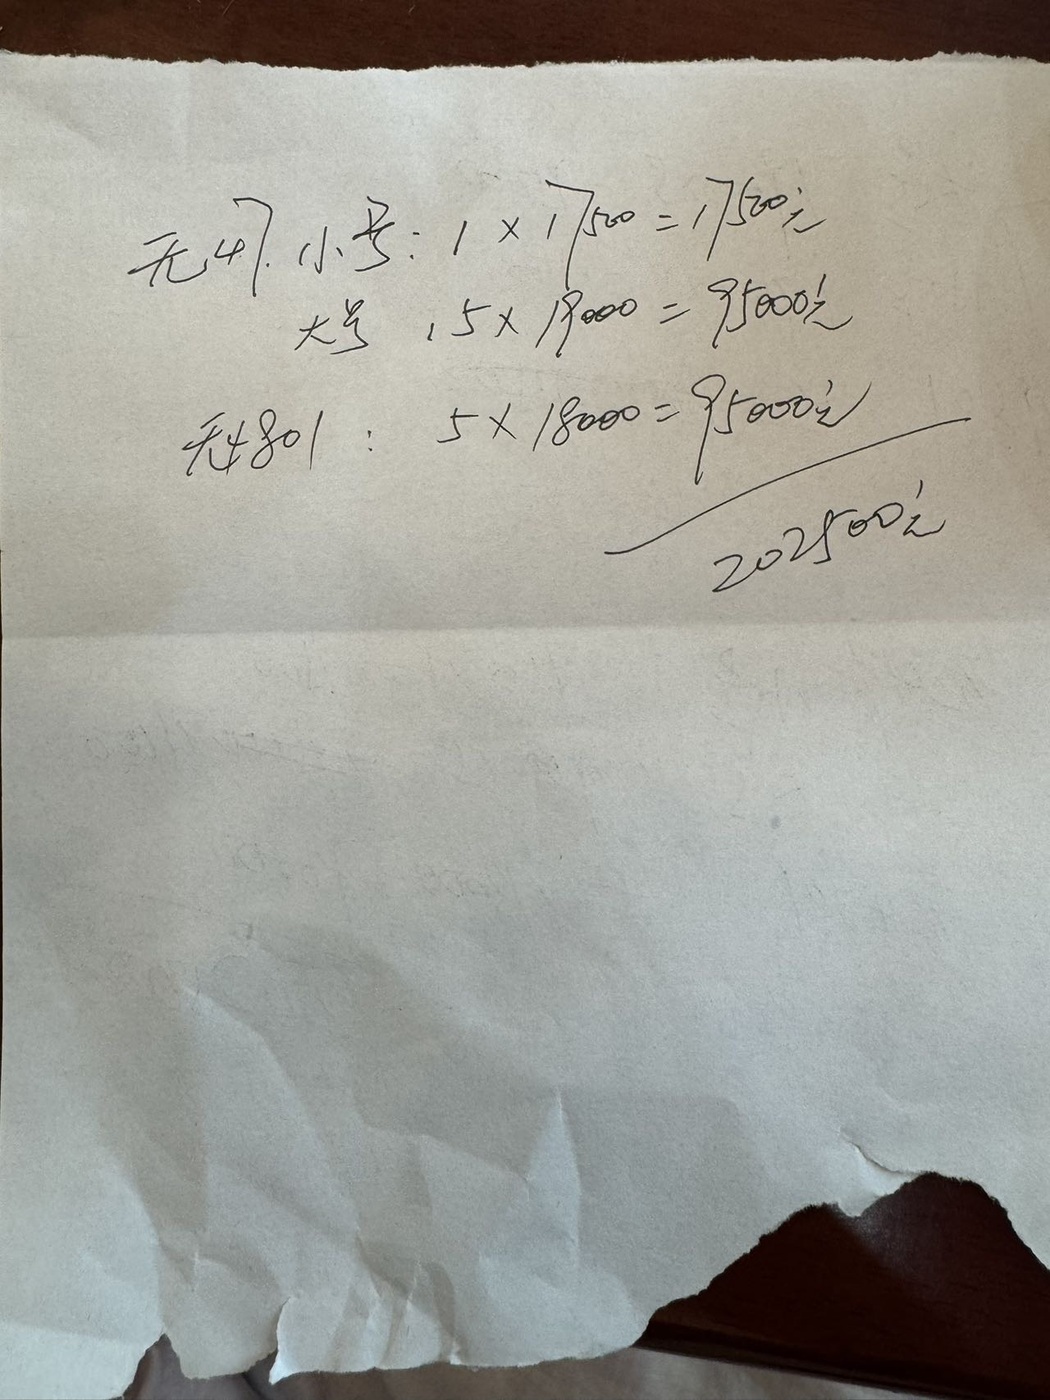 无47. 小号: 1 × 17500 = 17500元
大号 , 5 × 19000 = 95000元
无4801 : 5 × 18000 = 95000元
202500元